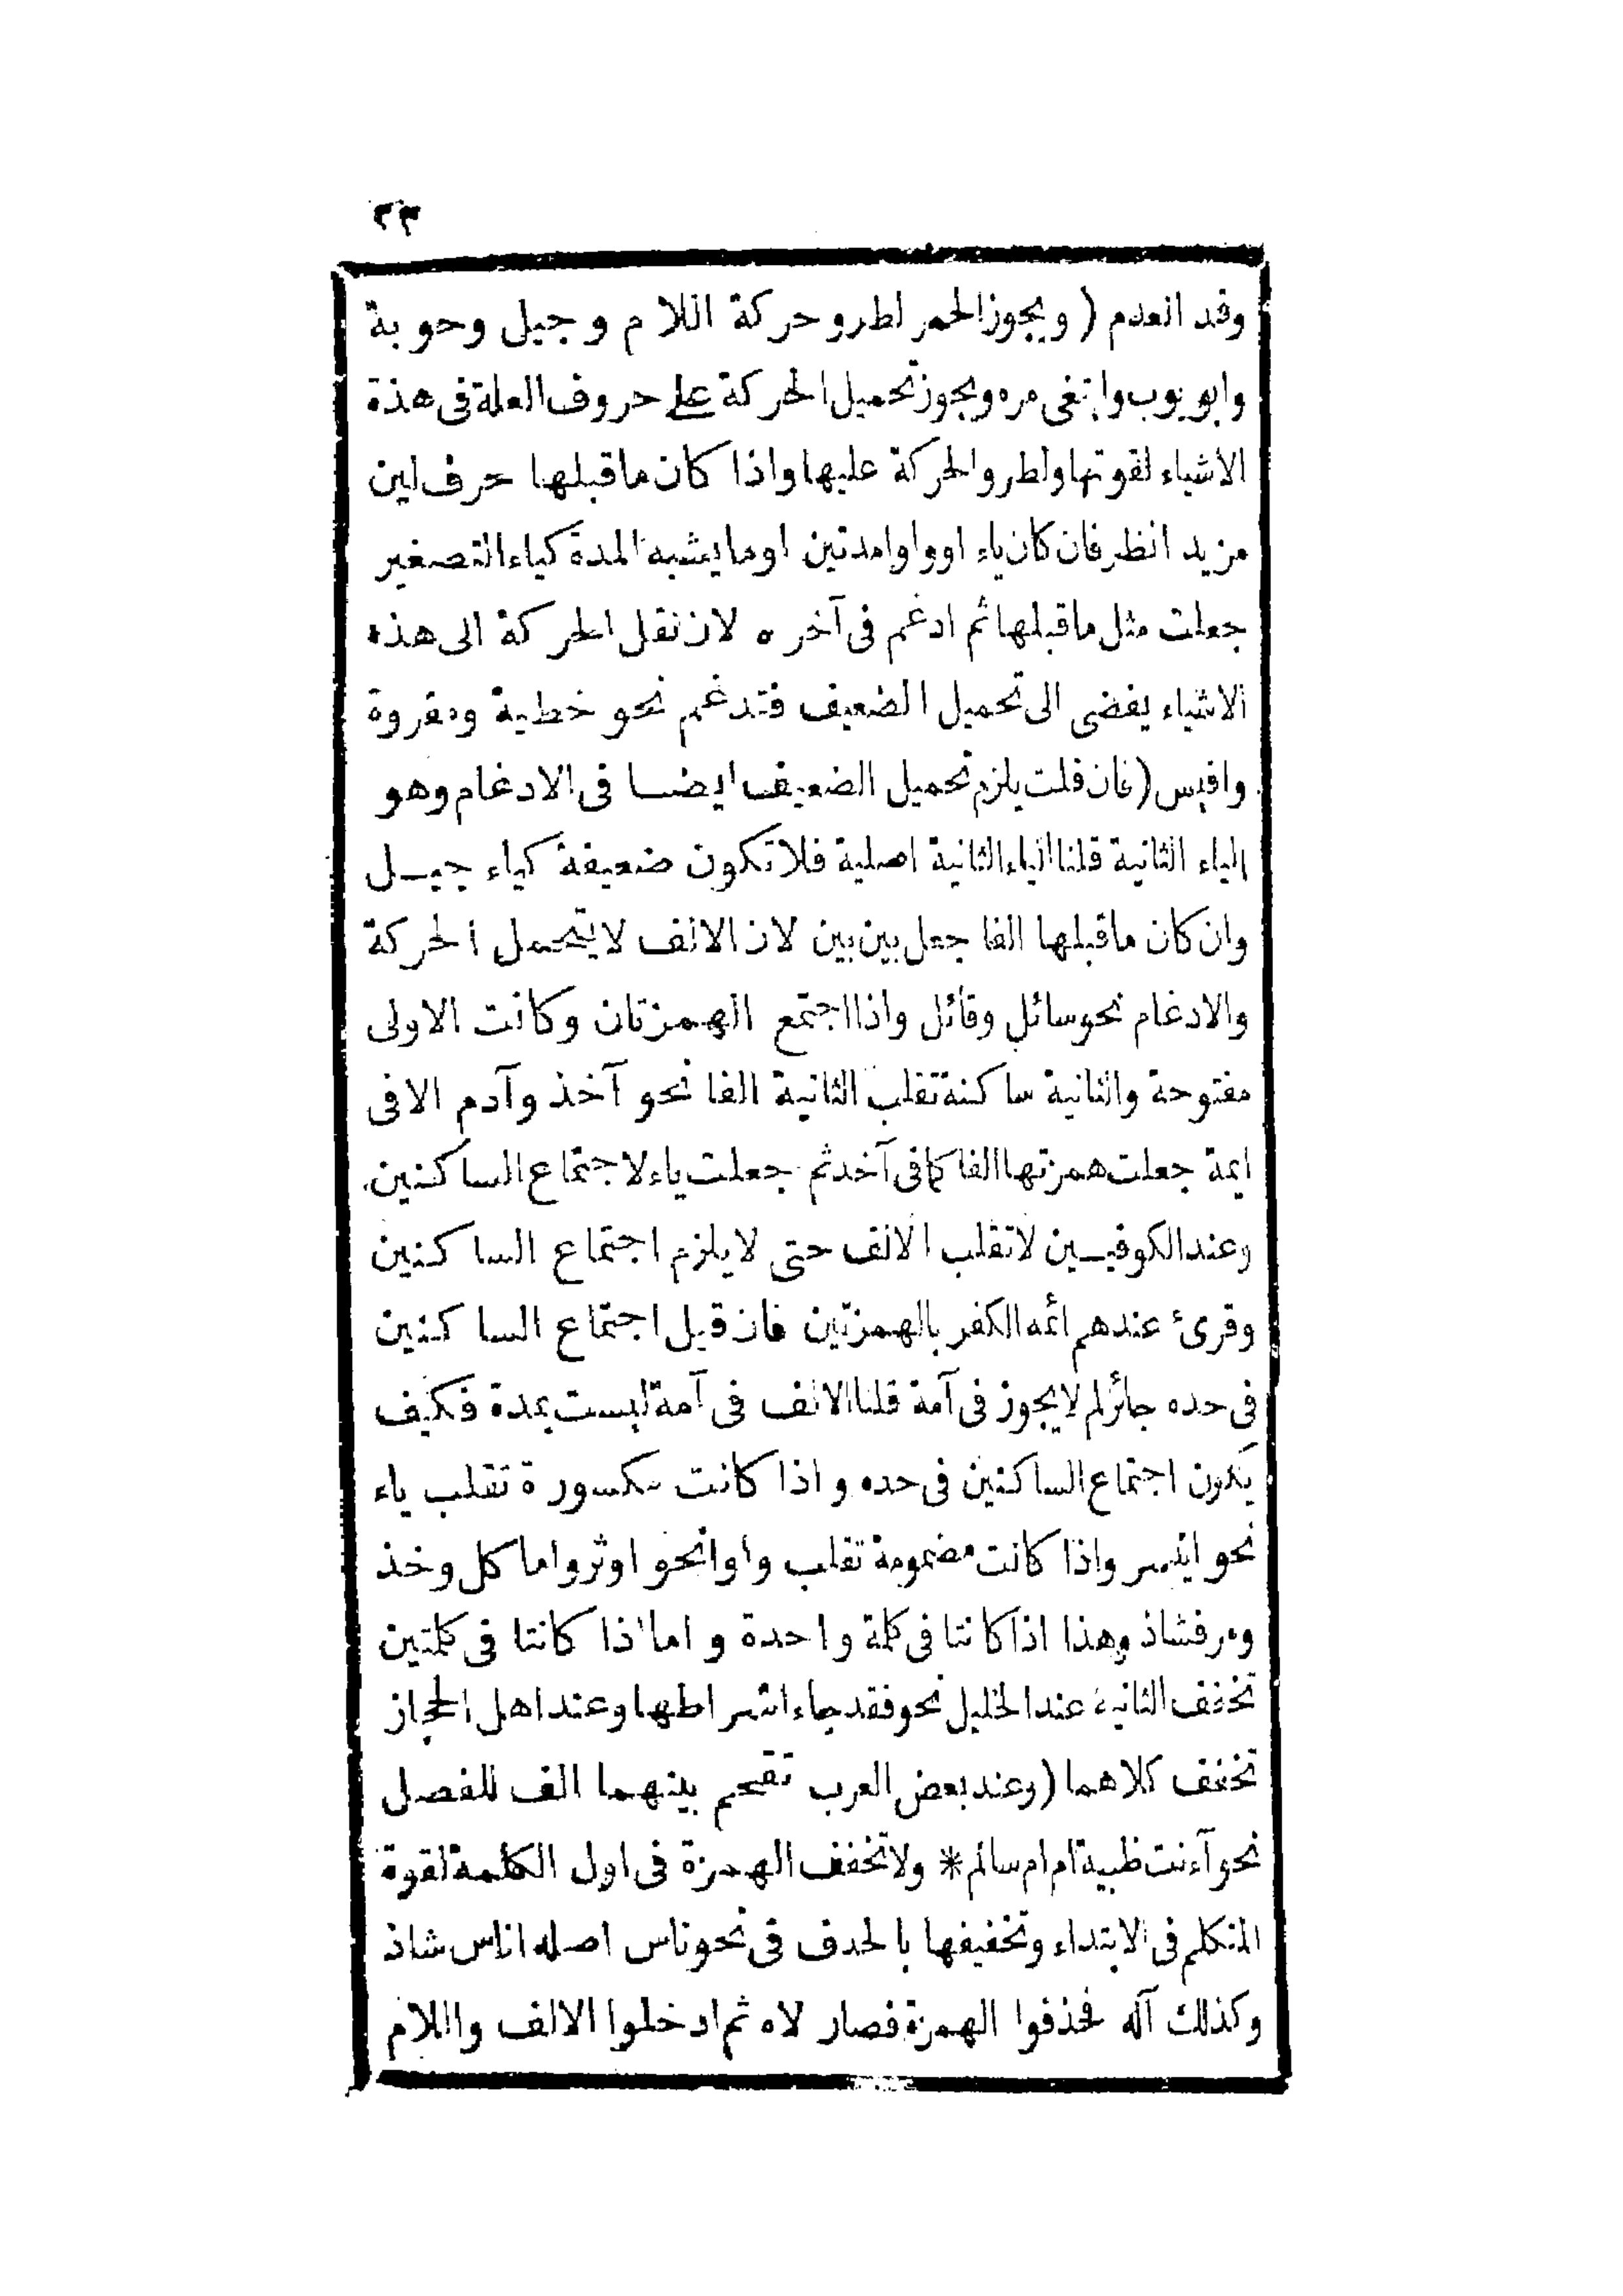 ٣٣
وقد انعدم ( ويجوز الحمر لطرو حركة اللام وجيل وحوبة
وابويوب وابتغى مره ويجوز تحميل الحركة على حروف العلة فى هذة
الاشياء لقوتها ولطرو الحركة عليها واذا كان ماقبلها حرف لين
مزيد انظر فان كان ياء او واوا مدتين او مايشبه المدة كياء التصغير
جعلت مثل ماقبلها ثم ادغم فى آخره لان نقل الحركة الى هذه
الاشياء يفضى الى تحميل الضعيف فتدغم نحو خطية ومقروة
وافيس ( فان قلت يلزم تحميل الضعيف ايضا فى الادغام وهو
الياء الثانية قلنا الياء الثانية اصلية فلا تكون ضعيفة كياء جيل
وان كان ماقبلها الفا جعل بين بين لان الالف لايتحمل الحركة
والادغام نحو سائل وقائل واذا اجتمع الهمزتان وكانت الاولى
مفتوحة والثانية ساكنة تقلب الثانية الفا نحو آخذ وآدم الا فى
ايمة جعلت همزتها الفا كما فى آخذ ثم جعلت ياء لاجتماع الساكنين
وعند الكوفيين لاتقلب الالف حتى لايلزم اجتماع الساكنين
وقرئ عندهم ائمه الكفر بالهمزتين فان قيل اجتماع الساكنين
فى حده جائز لم لايجوز فى آمة قلنا الالف فى آمة ليست بمدة فكيف
يكون اجتماع الساكنين فى حده واذا كانت مكسورة تقلب ياء
نحو ايسر واذا كانت مضمومة تقلب واوا نحو اوثر واما كل وخذ
ومر فشاذ وهذا اذا كانتا فى كلمة واحدة واما اذا كانتا فى كلمتين
تخفف الثانية عند الخليل نحو فقد جاء اشراطها وعند اهل الحجاز
تخفف كلاهما ( وعند بعض العرب تقحم بينهما الف للفصل
نحو آءنت ظبية ام ام سالم * ولا تخفف الهمزة فى اول الكلمة لقوة
المتكلم فى الابتداء وتخفيفها بالحذف فى نحو ناس اصله اناس شاذ
وكذلك آله فحذفوا الهمزة فصار لاه ثم ادخلوا الالف واللام